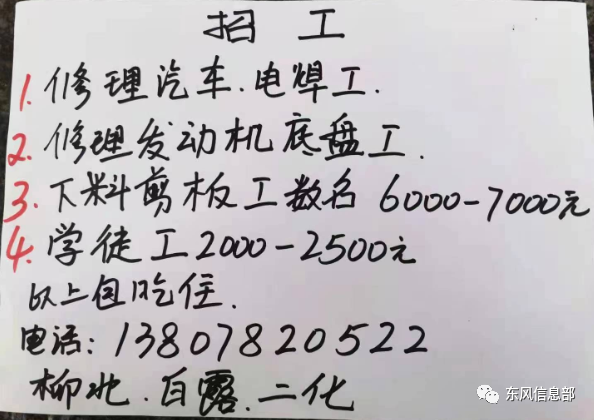 招工
1. 修理汽车.电焊工.
2. 修理发动机底盘工.
3. 下料剪板工数名 6000-7000元
4. 学徒工2000-2500元
以上包吃住.
电话: 13807820522
柳北.白露.二化
东风信息部